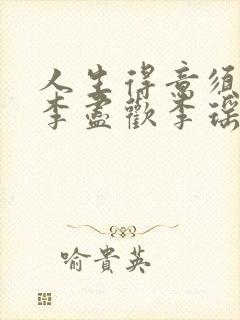 人生得意须
李盡歡李瑶
喻貴英